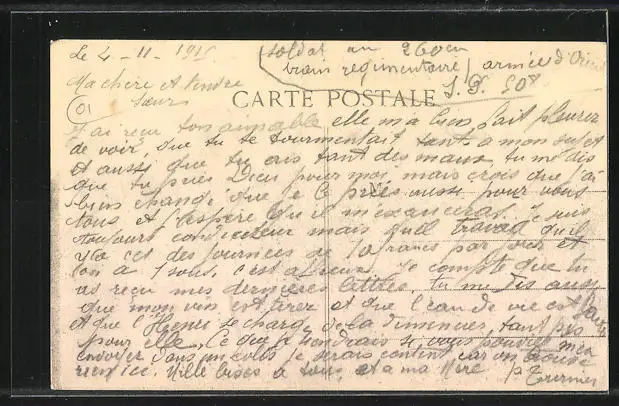 Le 4-11-191
(soldat au 260em
train regimentaire) armée d'Orien
S. P. 508
Ma chère et tendre
sœur
CARTE POSTALE
J'ai reçu ton aimable elle m'a bien fait pleurer
de voir que tu te tourmentait tant a mon sujet
et aussi que tu ais tant des maux, tu me dis
que tu pries Dieu pour moi mais crois que j'ai
bien changé que je le pries aussi pour vous
tous et j'espère qu'il m'exauceras. Je suis
toujours conducteur mais quel travail qu'il
y a cet des journées de 10 francs par jour et
l'on a 1 sous, c'est affreux. Je compte que tu
as reçu mes dernières lettres, tu me dis aussi
que mon vin est tirer et que l'eau de vie est faite
et que l'Henri se charge de la diminuer, tant pis
pour elle, Ce que je tiendrais si vous pouvez m'en
envoyer dans un colis je serais content car on trouve
rien ici. Mille bises à tous, et a ma Mère
Turnier